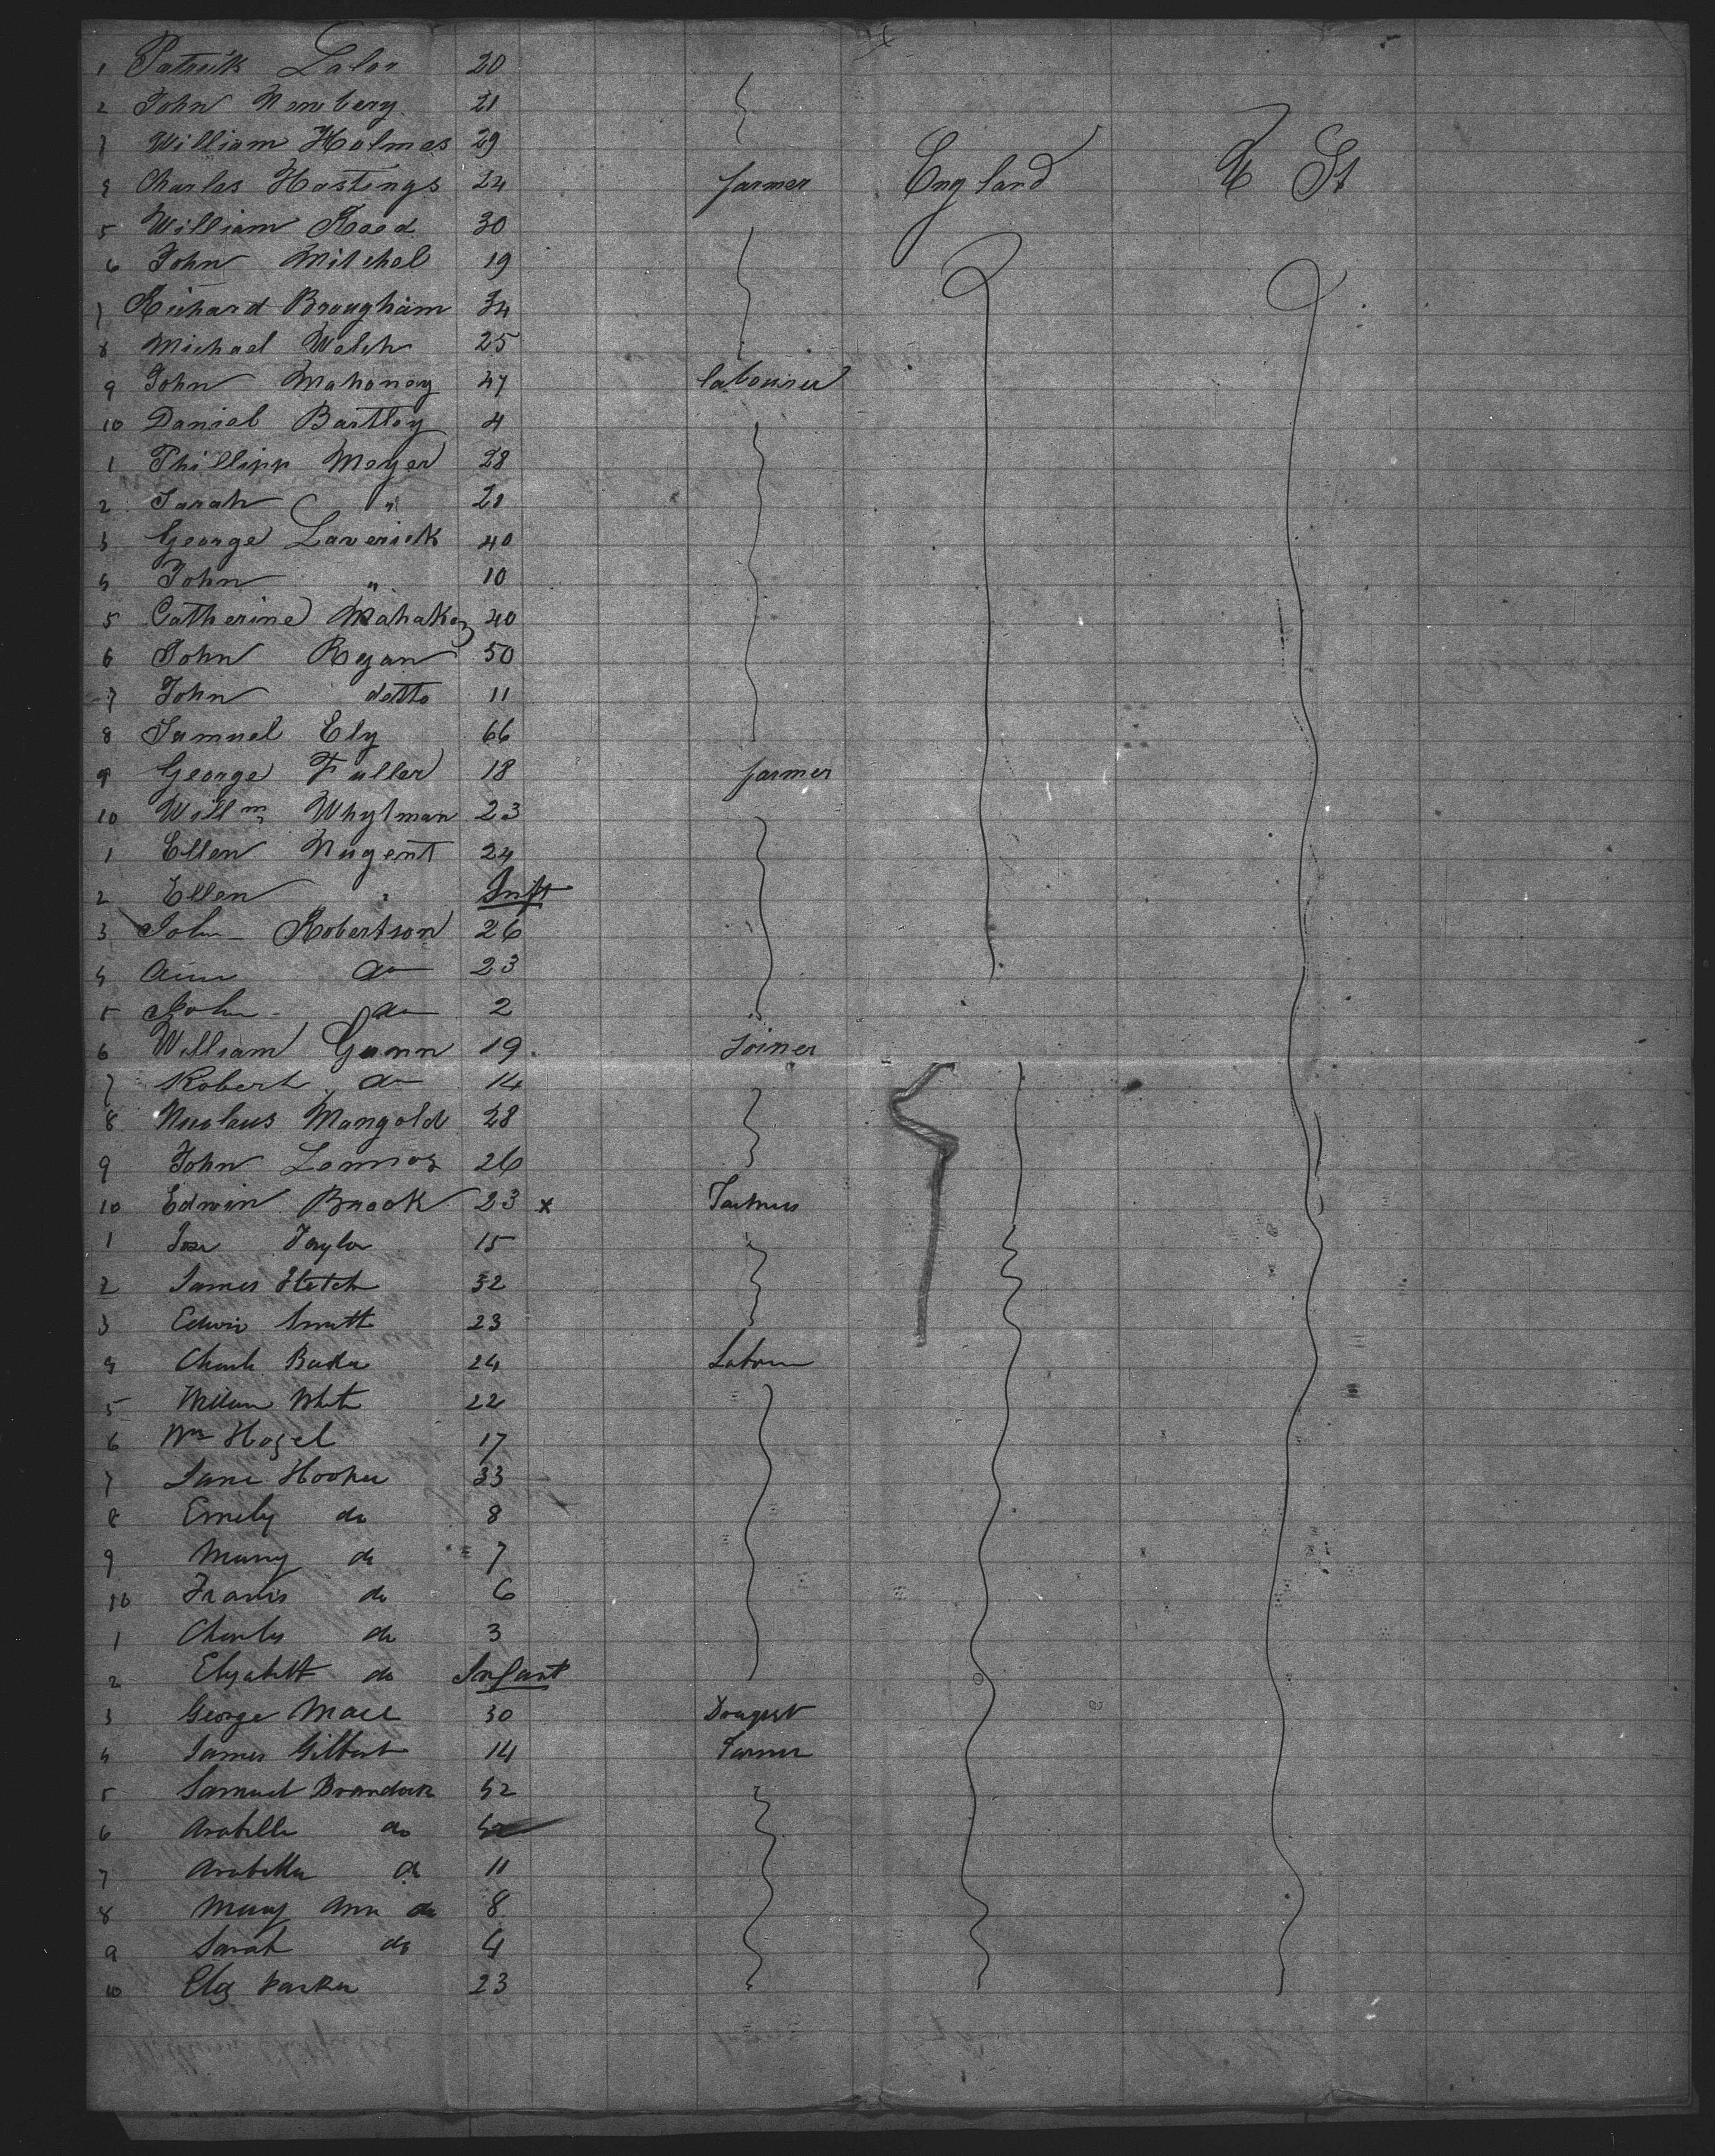 1 Patrick Lalor 20
2 John Newbery 21
3 William Holmes 29
4 Charles Hastings 24 farmer England U St
5 William Rood 30
6 John Mitchel 19
7 Richard Brougham 34
8 Michael Welch 25
9 John Mahoney 47 labourer
10 Daniel Bartley 4
1 Phillipp Meyer 28
2 Sarah " 21
3 George Laverick 40
4 John " 10
5 Catherine 40
6 John Regan 50
7 John detto 11
8 Samuel Ely 66
9 George Fuller 18 farmer
10 Willm Whytman 23
1 Ellen Nugent 24
2 Ellen " Inft
3 John Robertson 26
4 Ann do 23
5 John do 2
6 William Gunn 19 joiner
7 Robert do 14
8 Nicolaus Mangold 28
9 John 26
10 Edwin Brook 23 x
1 Taylor 15
2 James 32
3 Edwin Smith 23
4 Charls 24 Labour
5 William White 22
6 Wm Hozel 17
7 Jane Hooper 33
8 Emily do 8
9 Mary do 7
10 Francis do 6
1 Charles do 3
2 Elizabeth do Infant
3 George Mace 30 Drugist
4 James Gilbert 14 Farmer
5 Samuel 52
6 Arabella do
7 Arabella do 11
8 Mary Ann do 8
9 Sarah do 4
10 Elis Parker 23